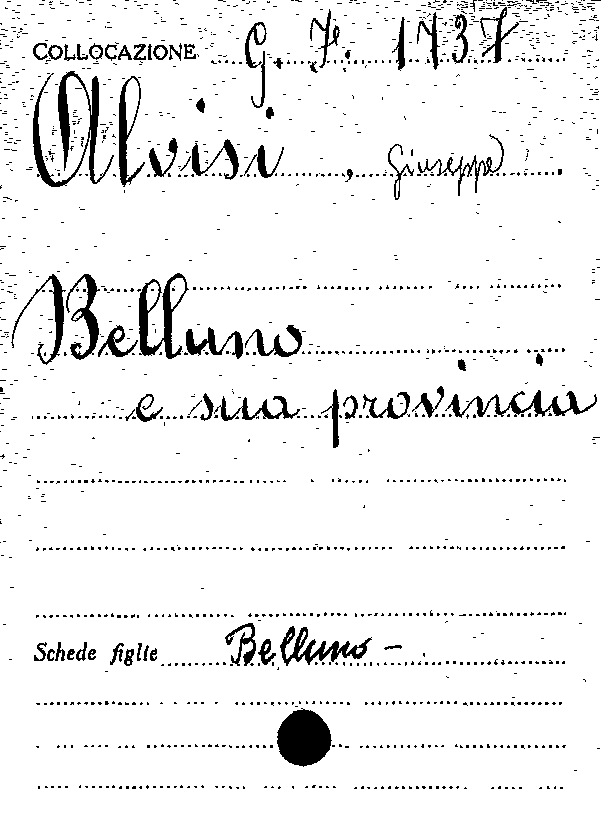 COLLOCAZIONE G. F. 1737
Alvisi, Giuseppe
Belluno
e sua provincia
Schede figlie Belluno -